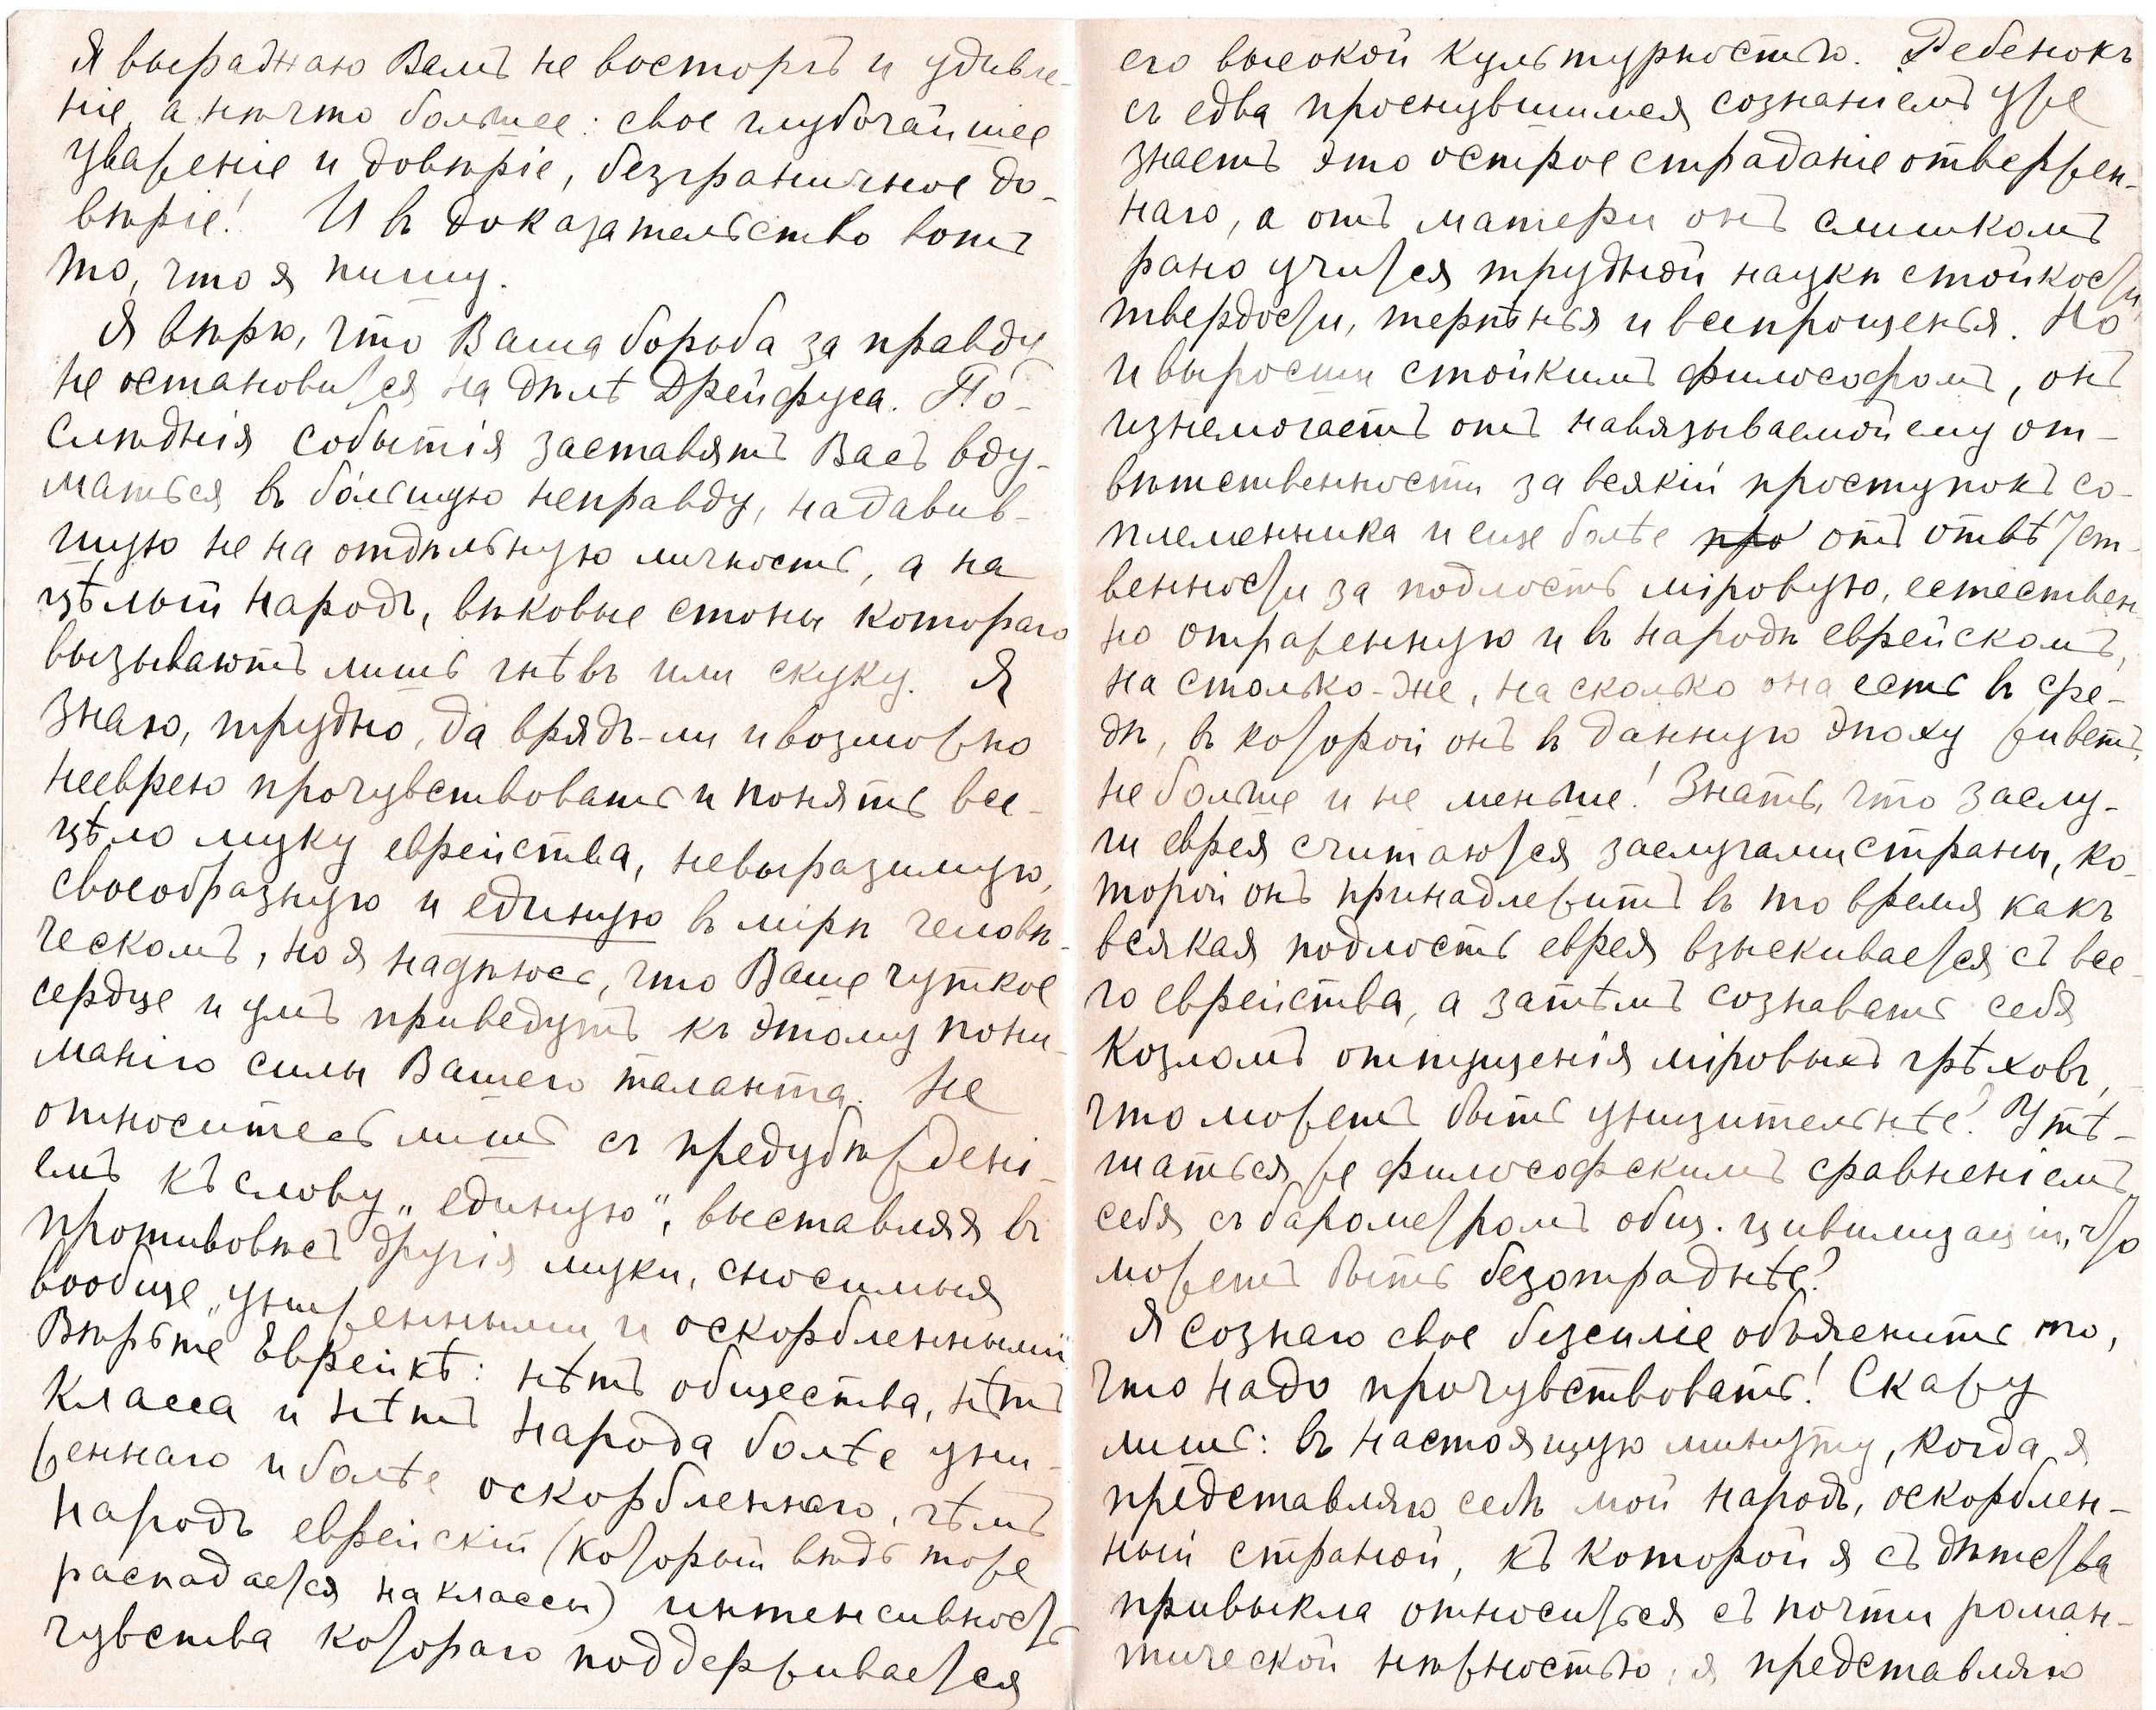 Я выражаю Вамъ не восторгъ и удивле-
ніе, а нѣчто большее: свое глубочайшее
уваженіе и довѣріе, безграничное до-
вѣріе! И въ доказательство вотъ
то, что я пишу.
Я вѣрю, что Ваша борьба за правду
не остановится на дѣлѣ Дрейфуса. По-
слѣднія событія заставятъ Васъ вду-
маться въ бо́льшую неправду, надавив-
шую не на отдѣльную личность, а на
цѣлый народъ, вѣковые стоны котораго
вызываютъ лишь гнѣвъ или скуку. Я
знаю, трудно, да врядъ-ли и возможно
нееврею прочувствовать и понять все-
цѣло муку еврейства, невыразимую,
своеобразную и единую въ мірѣ человѣ-
ческомъ, но я надѣюсь, что Ваше чуткое
сердце и умъ приведутъ къ этому пони-
манію силы Вашего таланта. Не
относитесь лишь съ предубѣждені-
емъ къ слову „единую“, выставляя въ
противовѣсъ другія муки, сносимыя
вообще „униженными и оскорбленными“
Вѣрьте Еврейкѣ: нѣтъ общества, нѣтъ
класса и нѣтъ народа болѣе уни-
женнаго и болѣе оскорбленнаго, чѣмъ
народъ еврейскій (который вѣдь тоже
распадается на классы) интенсивность
чувства котораго поддерживается
его высокой культурностью. Ребенокъ
съ едва проснувшимся сознаніемъ уже
знаетъ это острое страданіе отвержен-
наго, а отъ матери онъ слишкомъ
рано учится трудной наукѣ стойкости,
твердости, терпѣнья и всепрощенья. Но
и выросши стойкимъ философомъ, онъ
изнемогаетъ отъ навязываемой ему от-
вѣтственности за всякій проступокъ со-
племенника и еще болѣе про отъ отвѣтст-
венности за подлость міровую, естествен-
но отраженную и въ народѣ еврейскомъ,
на столько-же, на сколько она есть въ сре-
дѣ, въ которой онъ въ данную эпоху живетъ,
не больше и не меньше! Знать, что заслу-
ги еврея считаются заслугами страны, ко-
торой онъ принадлежитъ въ то время какъ
всякая подлость еврея взыскивается съ все-
го еврейства, а затѣмъ сознавать себя
козломъ отпущенія міровыхъ грѣховъ,
что можетъ быть унизительнѣе? Утѣ-
шаться же философскимъ сравненіемъ
себя съ барометромъ общ. цивилизаціи, что
можетъ быть безотраднѣе?
Я сознаю свое безсиліе объяснить то,
что надо прочувствовать! Скажу
лишь: въ настоящую минуту, когда я
представляю себѣ мой народъ, оскорблен-
ный страной, къ которой я съ дѣтства
привыкла относиться съ почти роман-
тической нѣжностью, я представляю